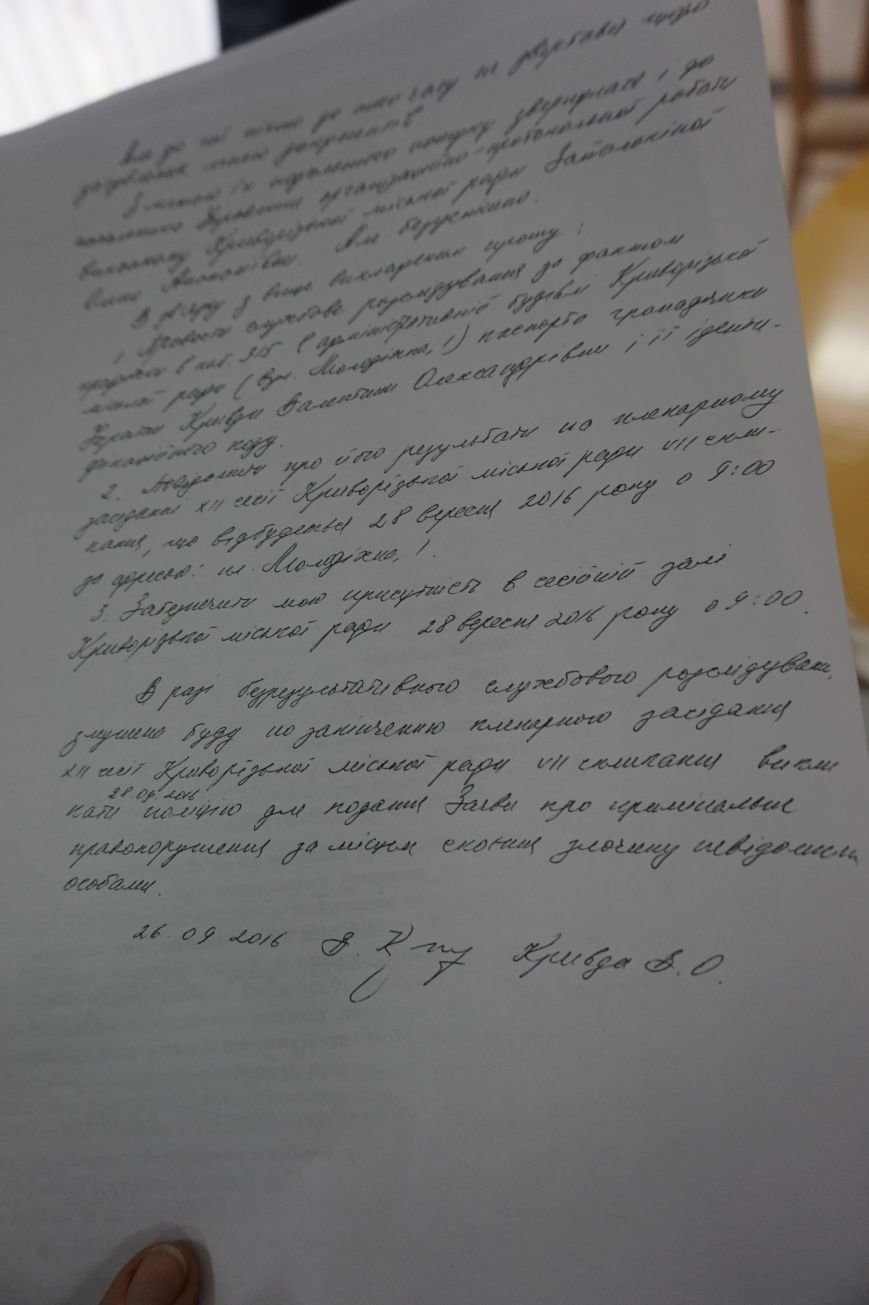 Але до неї ніхто до сего часу не звертався щодо
загублених мною документів
З метою їх подальшого пошуку звернулася і до
начальника Управління організаційно-протокольної роботи
виконкому Криворізької міської ради
Але безуспішно.
В зв'язку з вище викладеним прошу:
1. Провести службове розслідування за фактом
крадіжки в каб. 315 в адміністративній будівлі Криворізької
міської ради (вул. Молодіжна, 1) паспорта громадянки
України Кривди Валентини Олександрівни і її іденти-
фікаційного коду.
2. Повідомити про його результати на пленарному
засіданні XII сесії Криворізької міської ради VII скли-
кання, що відбудеться 28 вересня 2016 року о 9:00
за адресою: пл. Молодіжна, 1.
3. Забезпечити мою присутність в сесійній залі
Криворізької міської ради 28 вересня 2016 року о 9:00.
В разі безрезультативного службового розслідування,
змушена буду по закінченню пленарного засідання
XII сесії Криворізької міської ради VII скликання викли
28.09.2016
кати поліцію для подання Заяви про кримінальне
правопорушення за місцем скоєння злочину невідомими
особами.
26.09.2016 В. Кривда В.О.